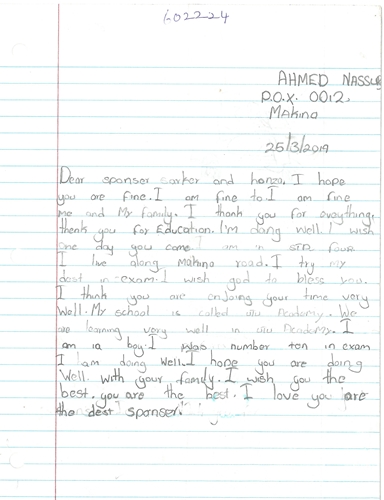 1-02224
AHMED NASSUR
P.O.X. 0012.
Makina
25/3/2019
Dear sponser sarkor and hanza, I hope
you are fine. I am fine to I am fine
me and My family. I thank you for everything.
thenk you for Education. I'm dang well. I wish
one day you come I am in STD four
I live along Makina road. I try my
dest in exam. I wish god to bless you.
I think you are enjoing your time very
Well. My school is called Academy. We
are learning very well in Academy. I
am a boy. I was number ten in exam
I am doing Well. I hope you are doing
Well with your family. I wish you the
best. you are the best. I love you are
the dest sponser.